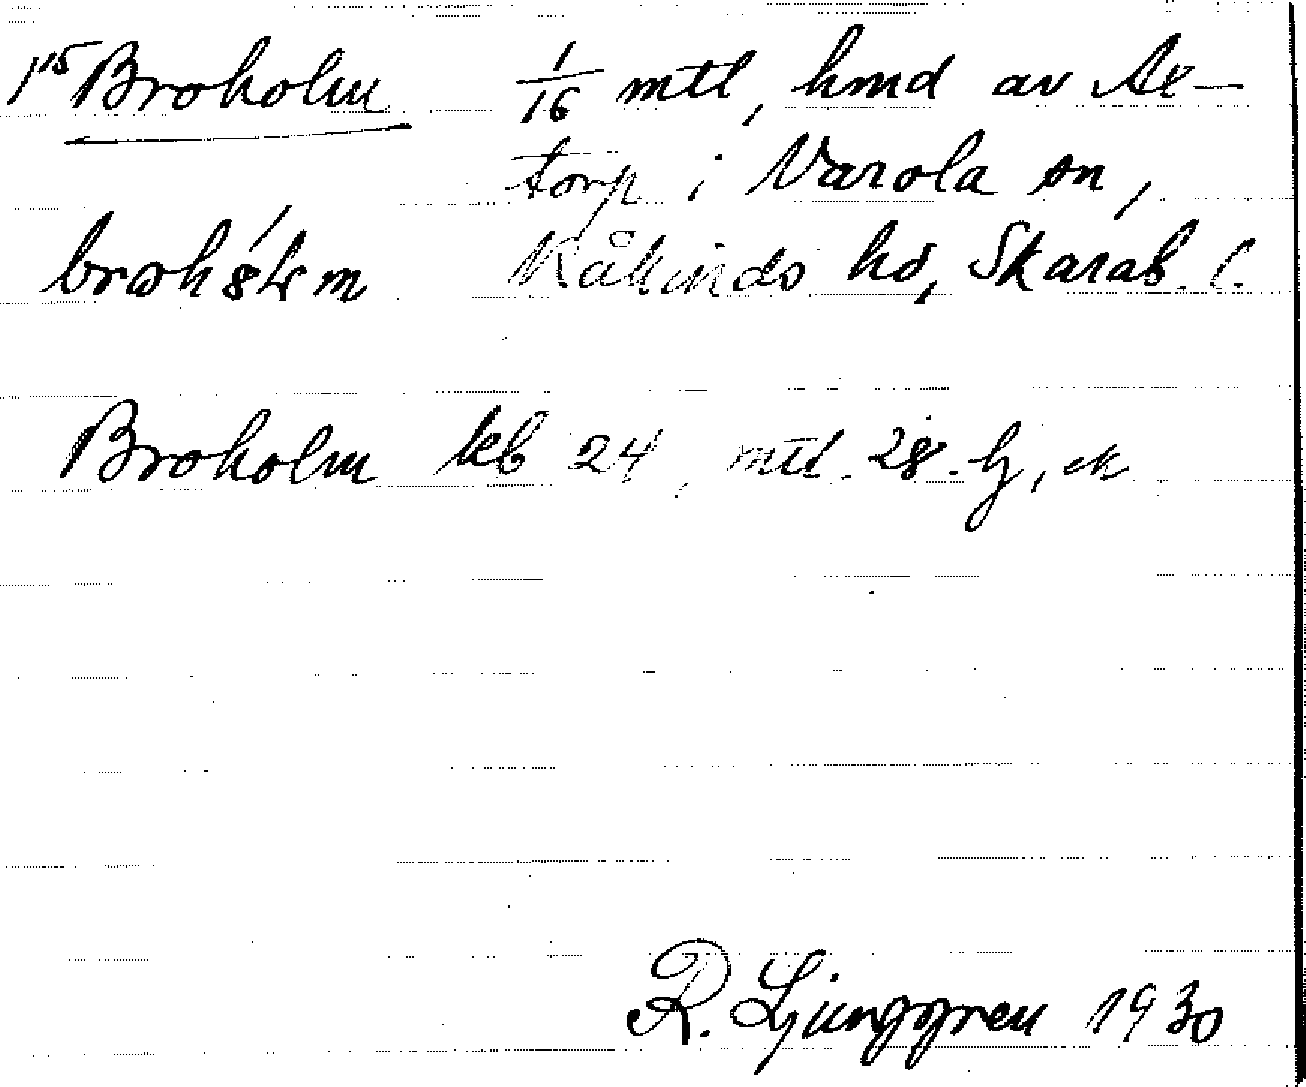 1¹⁵ Broholm 1/16 mtl, hmd av Ax-
torp i Varola sn,
Kåkinds hd, Skarab. l.
Broholm kb 24, mtl. 28. lj, ek
R. Ljunggren 1930